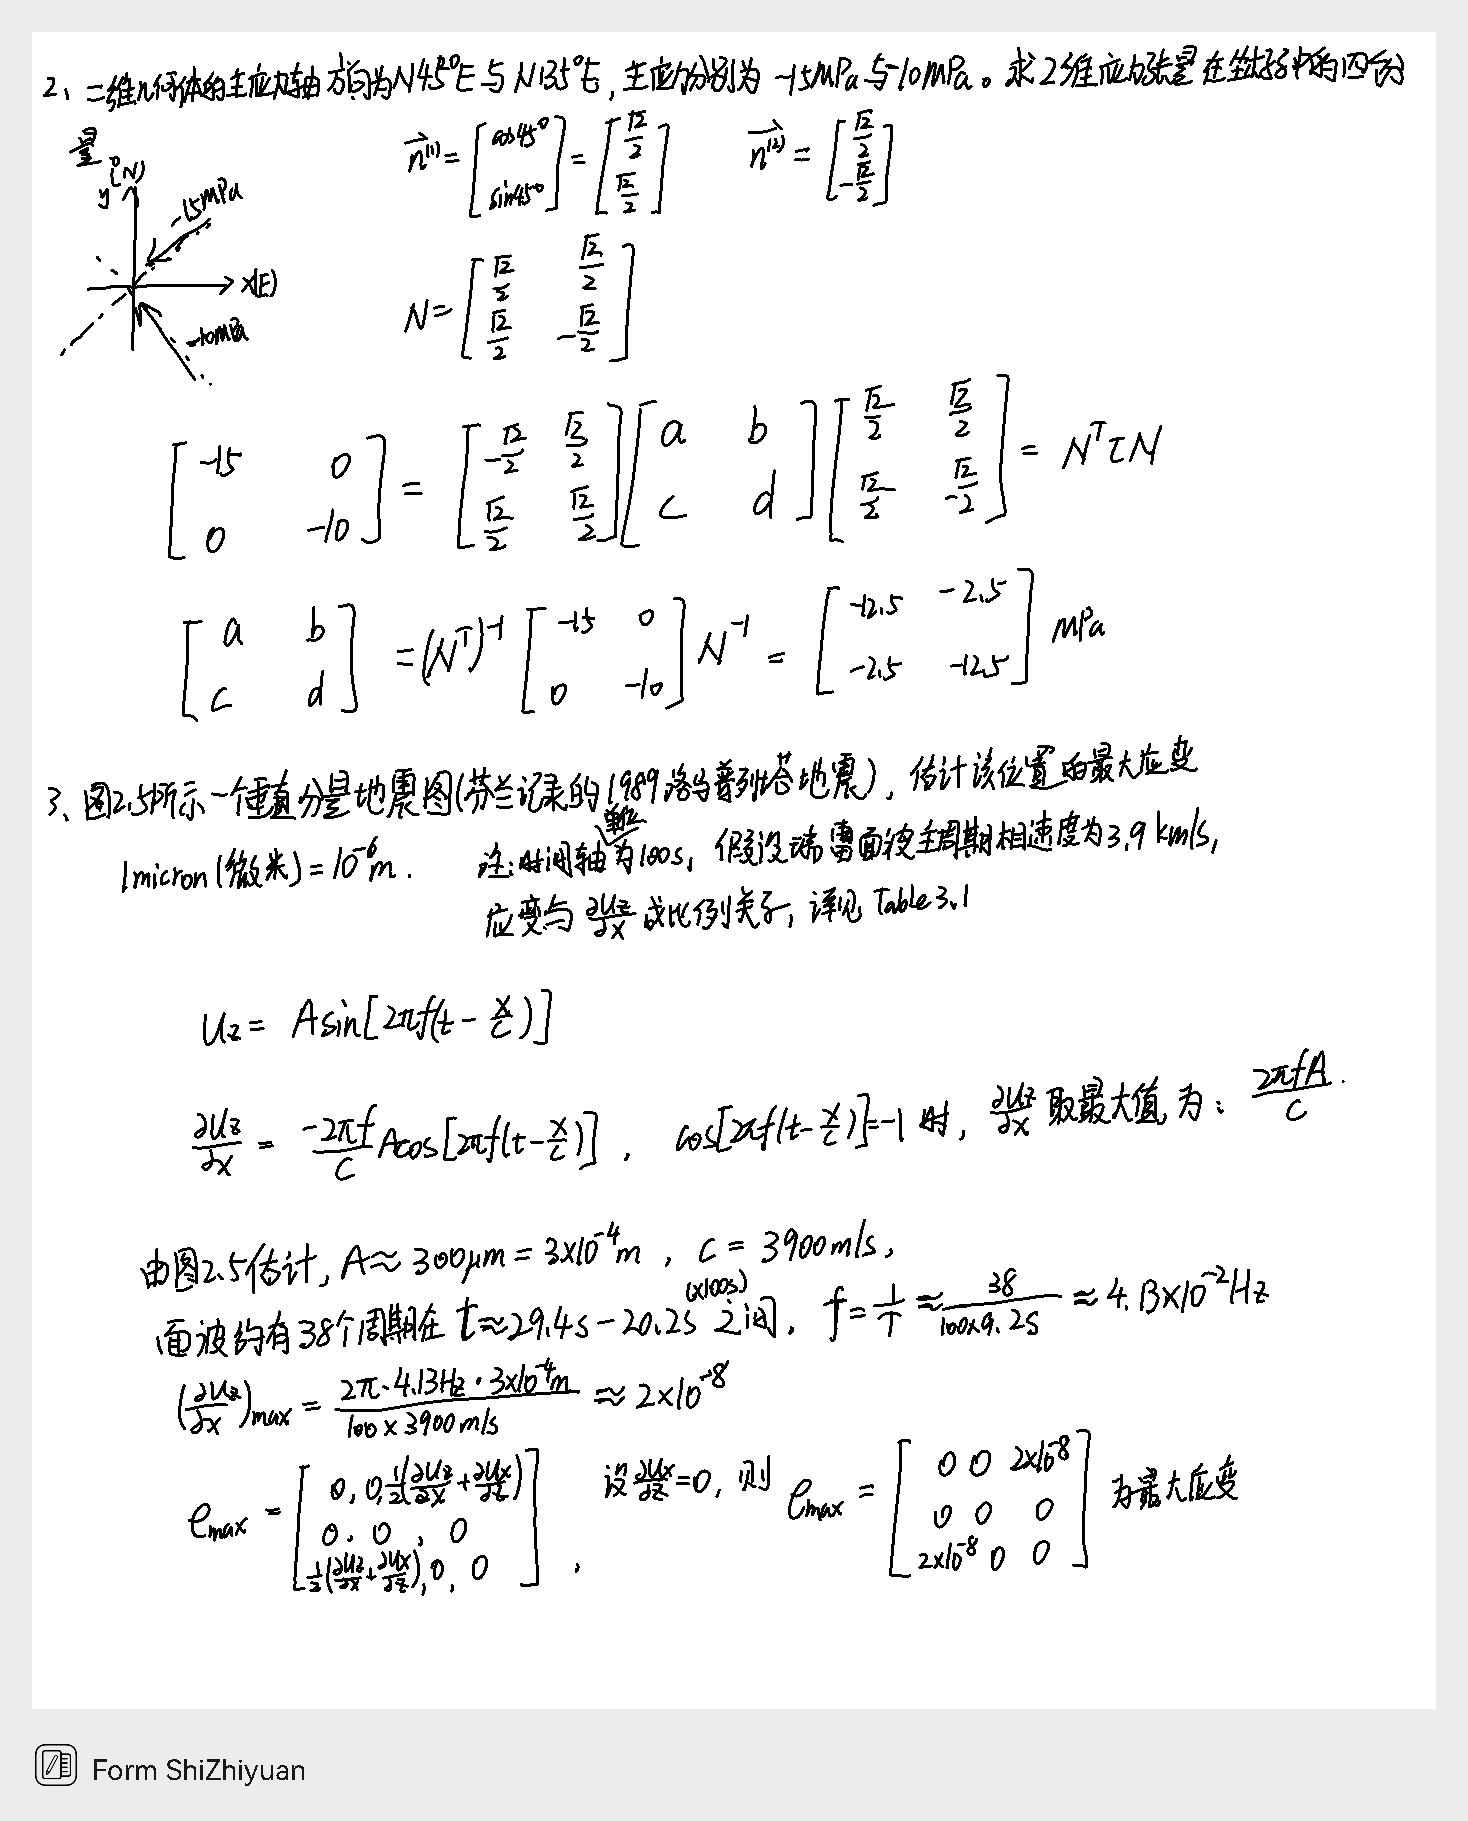 2、二维几何体的主应力轴方向为N45°E与N135°E,主应力分别为 -15MPa与-10MPa。求2维应力张量在坐标系中的四个分
量
y (N)
-15MPa
x(E)
-10MPa
n⃗⁽¹⁾ = [cos45°; sin45°] = [√2/2; √2/2]   n⃗⁽²⁾ = [√2/2; -√2/2]
N = [√2/2  √2/2; √2/2  -√2/2]
[-15  0; 0  -10] = [-√2/2  √2/2; √2/2  √2/2] [a  b; c  d] [√2/2  √2/2; √2/2  -√2/2] = NᵀτN
[a  b; c  d] = (Nᵀ)⁻¹ [-15  0; 0  -10] N⁻¹ = [-12.5  -2.5; -2.5  -12.5] MPa
3、图2.5所示一个垂直分量地震图(芬兰记录的1989洛马普列塔地震),估计该位置的最大应变
1micron(微米) = 10⁻⁶m.   注:时间轴单位为100s,假设瑞雷面波主周期相速度为3.9 km/s,
应变与 ∂uz/∂x 成比例关系,详见 Table 3.1
Uz = Asin[2πf(t - x/c)]
∂Uz/∂x = -2πf/c Acos[2πf(t - x/c)],  cos[2πf(t - x/c)] = -1 时, ∂Uz/∂x 取最大值为: 2πfA/c.
由图2.5估计, A ≈ 300μm = 3×10⁻⁴m, c = 3900m/s,
面波约有38个周期在 t≈29.4s-20.2s (×100s) 之间, f = 1/T ≈ 38/(100×9.2s) ≈ 4.13×10⁻²Hz
(∂Uz/∂x)max = (2π·4.13Hz·3×10⁻⁴m)/(100×3900m/s) ≈ 2×10⁻⁸
emax = [0, 0, 1/2(∂Uz/∂x + ∂Ux/∂z); 0, 0, 0; 1/2(∂Uz/∂x + ∂Ux/∂z), 0, 0],  设 ∂Ux/∂z = 0, 则 emax = [0  0  2×10⁻⁸; 0  0  0; 2×10⁻⁸  0  0] 为最大应变
Form ShiZhiyuan